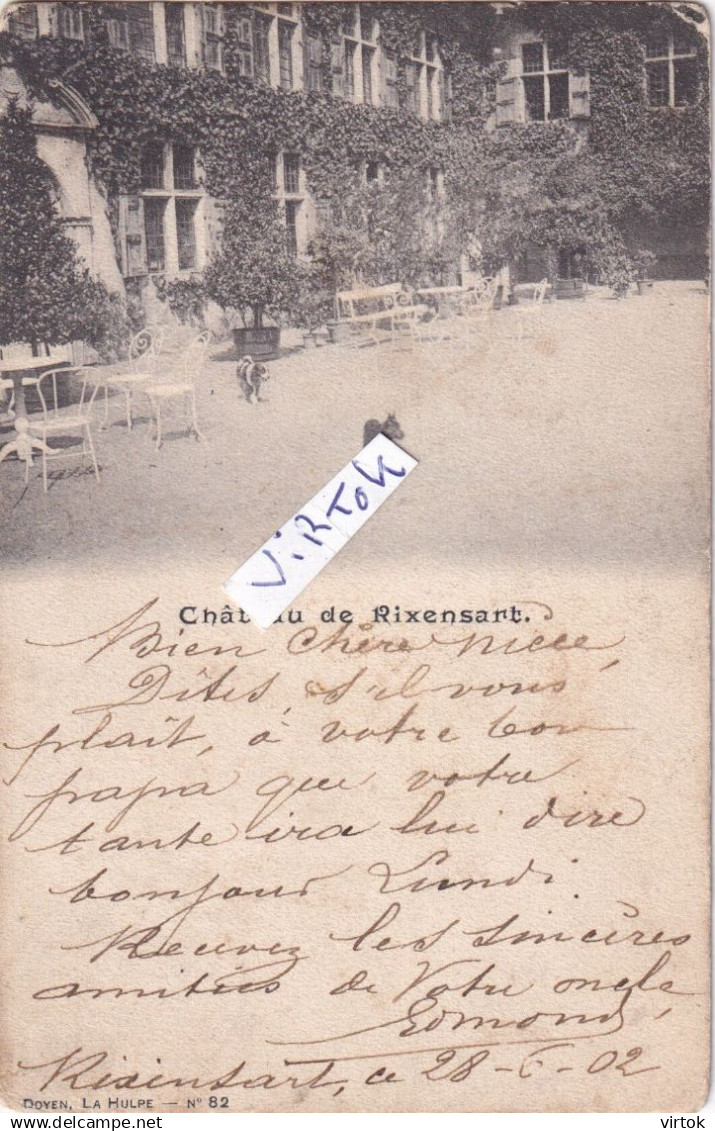 ViRtoK
Château de Rixensart.
Bien Chère nièce,
Dîtes, s'il vous
plaît, à votre bon
papa que votre
tante ira lui dire
bonjour Lundi.
Recevez les sincères
amitiés de Votre oncle
Edmond
Rixensart, ce 28-6-02
DOYEN, LA HULPE — N° 82
© virtok
delcampe.net